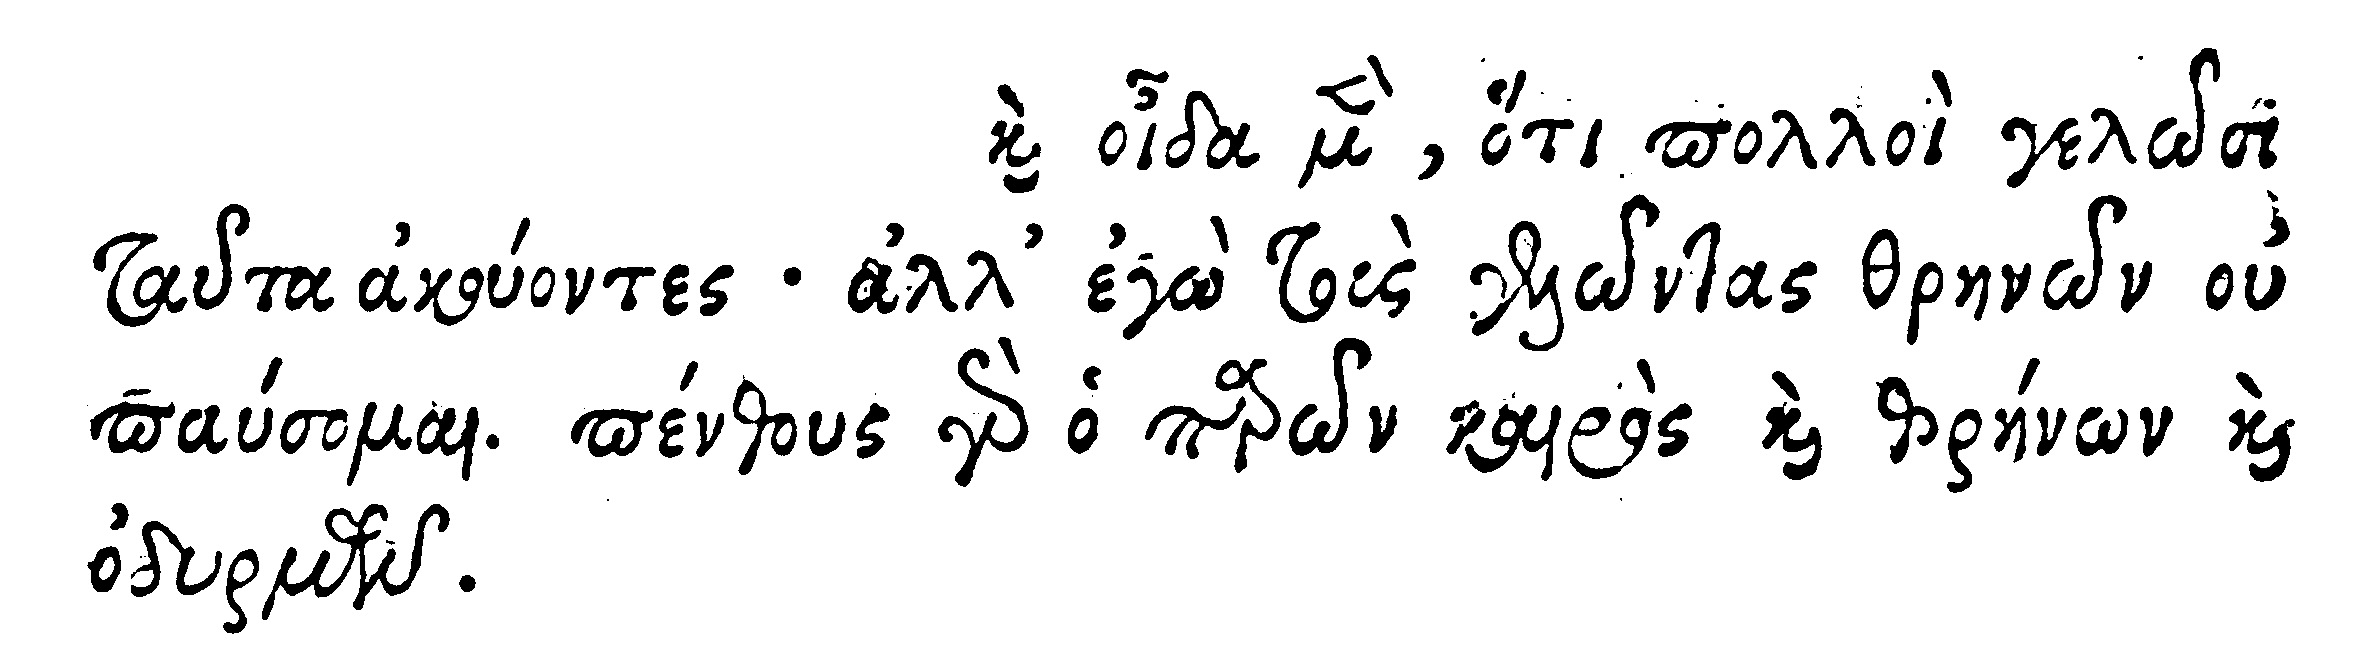 καὶ οἶδα μὲν, ὅτι πολλοὶ γελῶσι
ταῦτα ἀκούοντες · ἀλλ’ ἐγὼ τοὺς γελῶντας θρηνῶν οὐ
παύσομαι. πένθους γὰρ ὁ παρὼν καιρὸς καὶ θρήνων καὶ
ὀδυρμῶν.